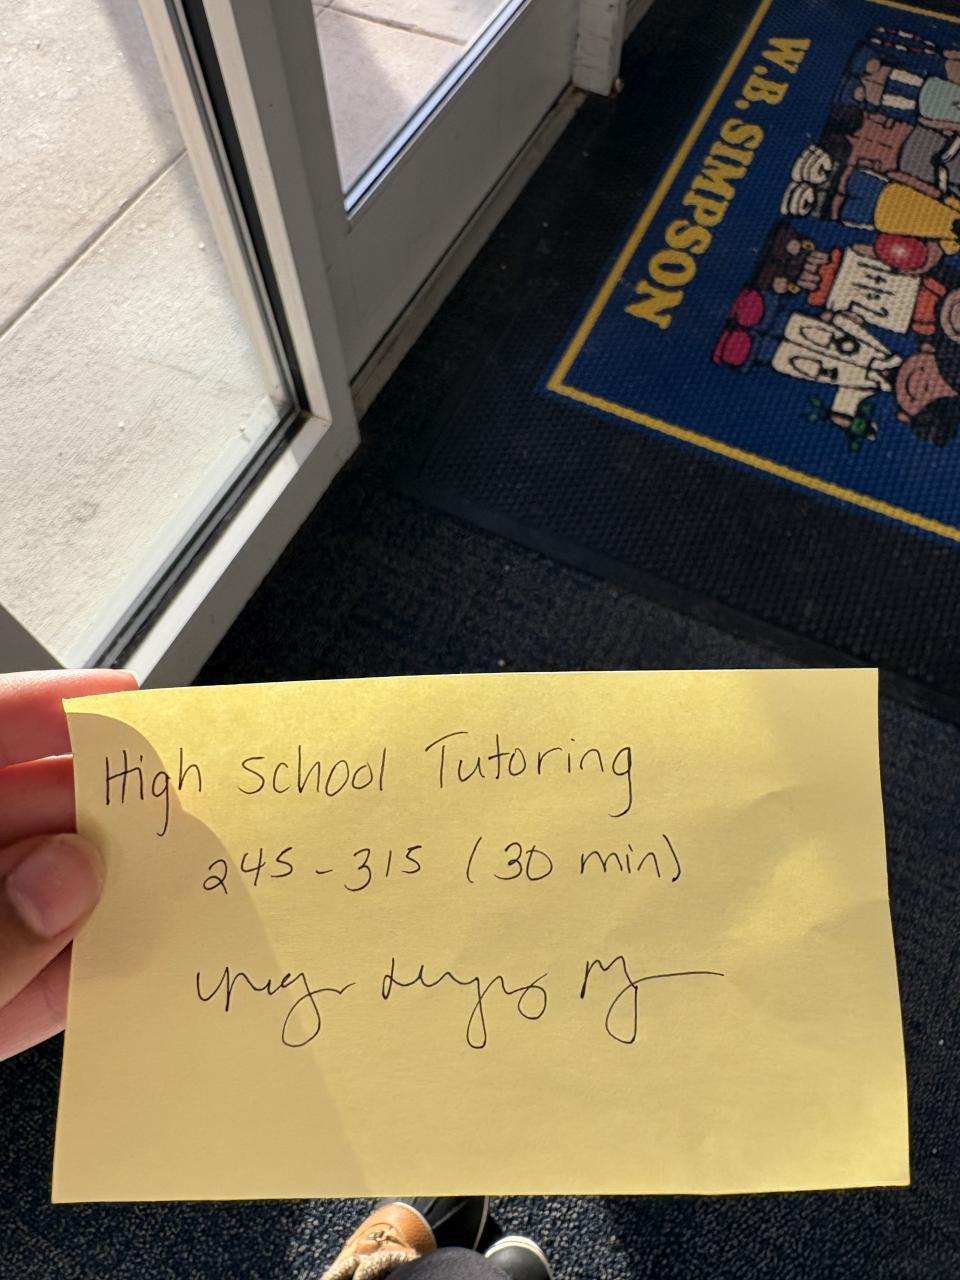 W.B. SIMPSON
High School Tutoring
245-315 (30 min)